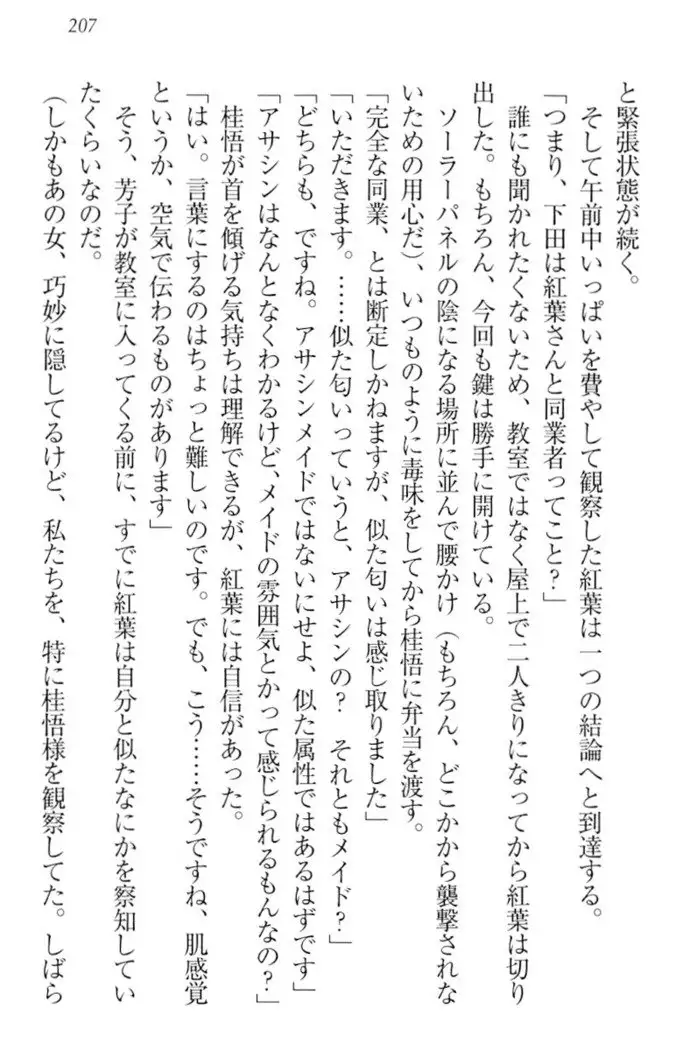 207
と緊張状態が続く。
そして午前中いっぱいを費やして観察した紅葉は一つの結論へと到達する。
「つまり、下田は紅葉さんと同業者ってこと?」
誰にも聞かれたくないため、教室ではなく屋上で二人きりになってから紅葉は切り
出した。もちろん、今回も鍵は勝手に開けている。
ソーラーパネルの陰になる場所に並んで腰かけ(もちろん、どこかから襲撃されな
いための用心だ)、いつものように毒味をしてから桂悟に弁当を渡す。
「完全な同業、とは断定しかねますが、似た匂いは感じ取りました」
「いただきます。……似た匂いっていうと、アサシンの? それともメイド?」
「どちらも、ですね。アサシンメイドではないにせよ、似た属性ではあるはずです」
「アサシンはなんとなくわかるけど、メイドの雰囲気とかって感じられるもんなの?」
桂悟が首を傾げる気持ちは理解できるが、紅葉には自信があった。
「はい。言葉にするのはちょっと難しいのです。でも、こう……そうですね、肌感覚
というか、空気で伝わるものがあります」
そう、芳子が教室に入ってくる前に、すでに紅葉は自分と似たなにかを察知してい
たくらいなのだ。
(しかもあの女、巧妙に隠してるけど、私たちを、特に桂悟様を観察してた。しばら